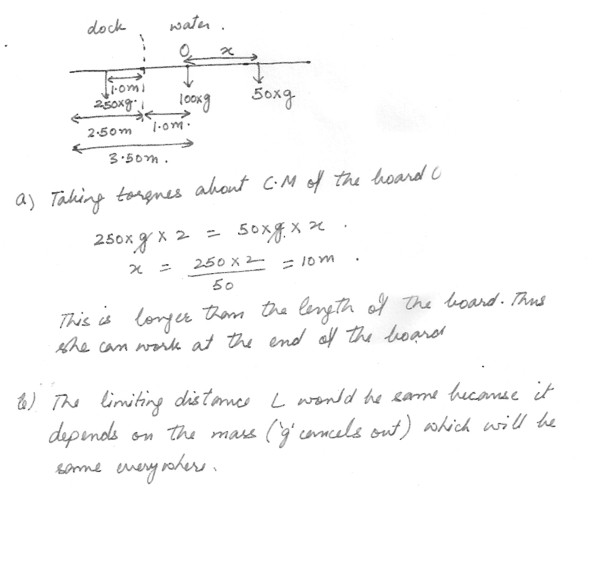 dock water.
O x
1.0m
250xg. 100xg 50xg
2.50m 1.0m.
3.50m.
a) Taking torques about C.M of the board
250xg x 2 = 50xg x x .
x = 250 x 2 / 50 = 10m .
This is longer than the length of the board. Thus
she can work at the end of the board
b) The limiting distance L would be same because it
depends on the mass ('g' cancels out) which will be
same everywhere.